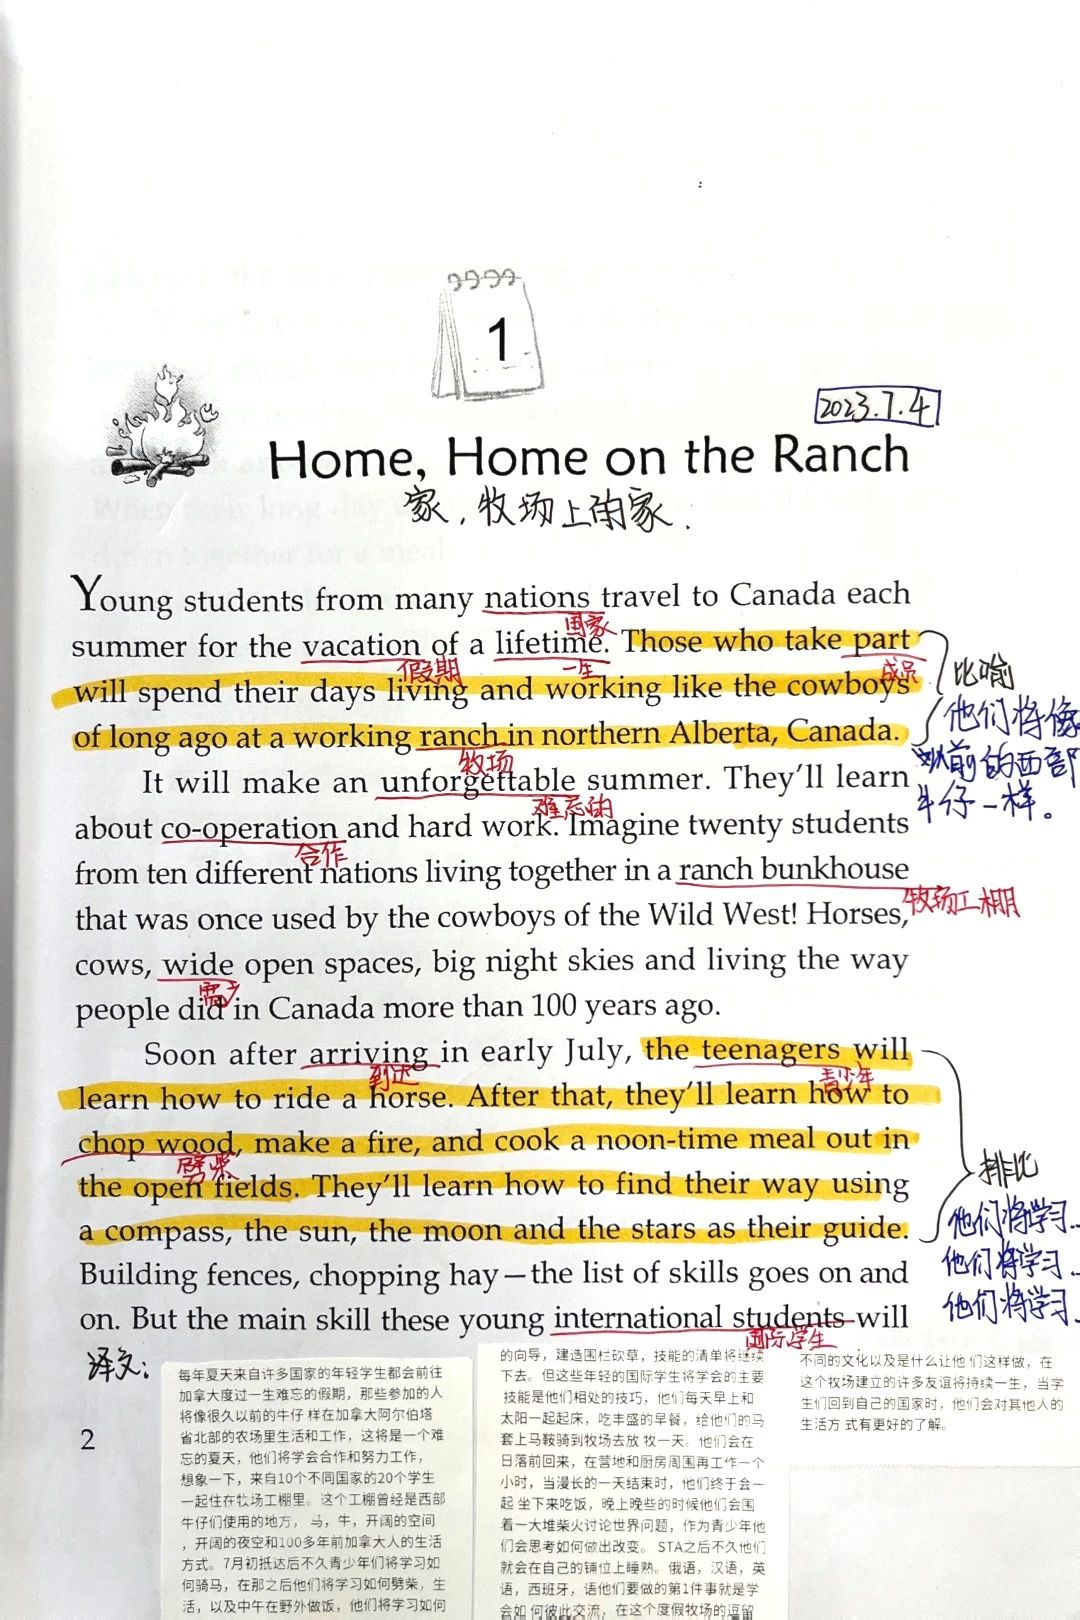 1
2023.7.4
Home, Home on the Ranch
家，牧场上的家.
Young students from many nations travel to Canada each
国家
summer for the vacation of a lifetime. Those who take part
假期 一生 成员
will spend their days living and working like the cowboys
of long ago at a working ranch in northern Alberta, Canada.
牧场
比喻
他们将像
以前的西部
牛仔一样。
It will make an unforgettable summer. They'll learn
难忘的
about co-operation and hard work. Imagine twenty students
合作
from ten different nations living together in a ranch bunkhouse
牧场工棚
that was once used by the cowboys of the Wild West! Horses,
cows, wide open spaces, big night skies and living the way
people did in Canada more than 100 years ago.
Soon after arriving in early July, the teenagers will
到达 青少年
learn how to ride a horse. After that, they'll learn how to
chop wood, make a fire, and cook a noon-time meal out in
劈柴
the open fields. They'll learn how to find their way using
a compass, the sun, the moon and the stars as their guide.
排比
他们将学习...
他们将学习...
他们将学习...
Building fences, chopping hay—the list of skills goes on and
on. But the main skill these young international students will
国际学生
译文:
每年夏天来自许多国家的年轻学生都会前往
加拿大度过一生难忘的假期，那些参加的人
将像很久以前的牛仔 样在加拿大阿尔伯塔
省北部的农场里生活和工作，这将是一个难
忘的夏天，他们将学会合作和努力工作，
想象一下，来自10个不同国家的20个学生
一起住在牧场工棚里。 这个工棚曾经是西部
牛仔们使用的地方， 马，牛，开阔的空间
，开阔的夜空和100多年前加拿大人的生活
方式。7月初抵达后不久青少年们将学习如
何骑马，在那之后他们将学习如何劈柴，生
活，以及中午在野外做饭，他们将学习如何
的向导，建造围栏砍草，技能的清单将继续
下去。但这些年轻的国际学生将学会的主要
技能是他们相处的技巧，他们每天早上和
太阳一起起床，吃丰盛的早餐，给他们的马
套上马鞍骑到牧场去放 牧一天。他们会在
日落前回来，在营地和厨房周围再工作一个
小时，当漫长的一天结束时，他们终于会一
起 坐下来吃饭，晚上晚些的时候他们会围
着一大堆柴火讨论世界问题，作为青少年他
们会思考如何做出改变。 STA之后不久他们
就会在自己的铺位上睡熟。俄语，汉语，英
语，西班牙，语他们要做的第1件事就是学
会如 何彼此交流，在这个度假牧场的逗留
不同的文化以及是什么让他 们这样做，在
这个牧场建立的许多友谊将持续一生，当学
生们回到自己的国家时，他们会对其他人的
生活方 式有更好的了解。
2